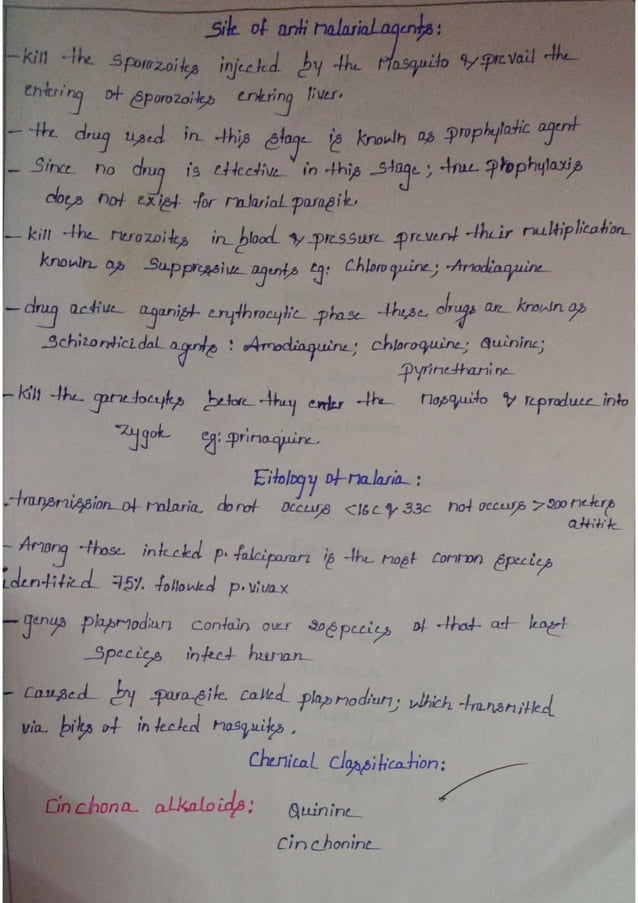 Site of anti malarial agents:
- kill the sporozoites injected by the Mosquito & prevail the
entering of sporozoites entering liver.
- the drug used in this stage is known as prophylatic agent
- Since no drug is effective in this stage; true prophylaxis
does not exist for malarial parasite.
- kill the merozoites in blood & pressure prevent their multiplication
known as suppressive agents eg: Chloroquine; Amodiaquine
- drug active aganist erythrocytic phase these drugs are known as
Schizonticidal agents: Amodiaquine; chloroquine; Quinine;
pyrimethamine
- Kill the gametocytes before they enter the mosquito & reproduce into
zygote eg: primaquine
Eitology of malaria:
. transmission of malaria do not occurs <16c & 33c not occurs >200 meters
attitite
- Among those infected p. falciparam is the most common species
identified 75% followed p. vivax
- genus plasmodium contain over 20 species of that at least
species infect human
- caused by parasite called plasmodium; which transmitted
via bites of infected mosquites.
Chemical Classification:
Cinchona alkaloids: Quinine
Cinchonine